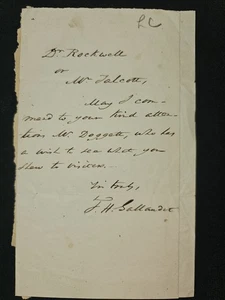 LC
Dr. Rockwell
or
Mr. Talcott,
May I com-
mend to your kind atten-
tion Mr Doggett, who has
a wish to see what you
show to visitors.
Yrs truly,
T. H. Gallaudet